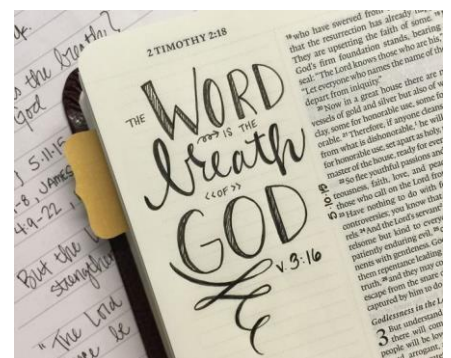 the breath?
God
5:11-15
-8, JAMES
4:9-22
But the
" The Lord
be
2 TIMOTHY 2:18
THE WORD
IS THE
breath
<<OF>>
GOD
v. 3:16
18 who have swerved from
that the resurrection has already
They are upsetting the faith of some. 19
God's firm foundation stands, bearing
seal: "The Lord knows those who are his,"
"Let everyone who names the name of the
depart from iniquity."
20 Now in a great house there are n
vessels of gold and silver but also of w
clay, some for honorable use, some fo
orable. 21 Therefore, if anyone cleans
from what is dishonorable, he will
for honorable use, set apart as holy,
master of the house, ready for ever
22 So flee youthful passions and
teousness, faith, love, and peac
those who call on the Lord from
23 Have nothing to do with f
controversies; you know that
rels. 24 And the Lord's servant
relsome but kind to every
patiently enduring evil, 25
nents with gentleness. God
them repentance leading
truth, 26 and they may co
escape from the snare o
captured by him to do
Godlessness in the L
3 But understand
there will come
people will be lov
arrogant,